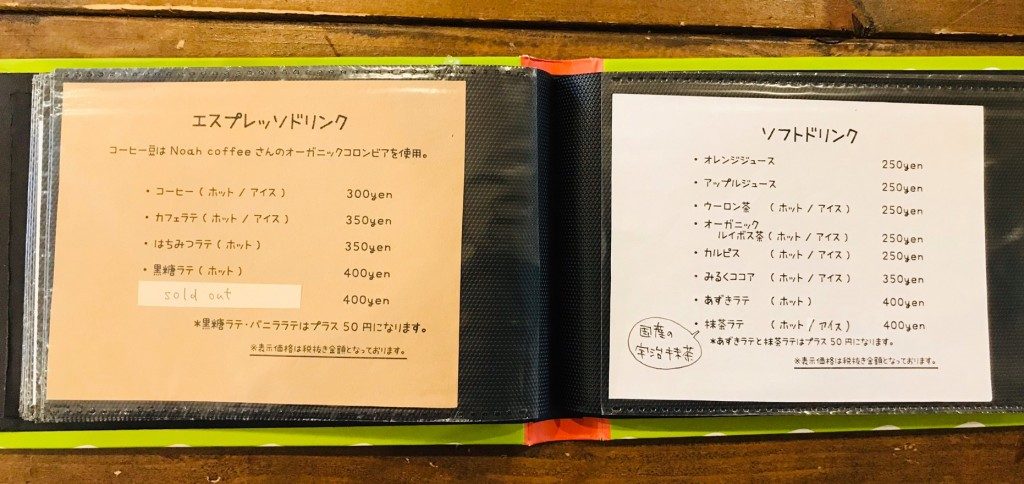 エスプレッソドリンク
コーヒー豆は Noah coffee さんのオーガニックコロンビアを使用。
・コーヒー ( ホット / アイス ) 300yen
・カフェラテ ( ホット / アイス ) 350yen
・はちみつラテ ( ホット ) 350yen
・黒糖ラテ ( ホット ) 400yen
sold out 400yen
*黒糖ラテ・バニララテはプラス 50 円になります。
※表示価格は税抜き金額となっております。
ソフトドリンク
・オレンジジュース 250yen
・アップルジュース 250yen
・ウーロン茶 ( ホット / アイス ) 250yen
・オーガニック
ルイボス茶 ( ホット / アイス ) 250yen
・カルピス ( ホット / アイス ) 250yen
・みるくココア ( ホット / アイス ) 350yen
・あずきラテ ( ホット ) 400yen
・抹茶ラテ ( ホット / アイス ) 400yen
国産の
宇治抹茶
*あずきラテと抹茶ラテはプラス 50 円になります。
※表示価格は税抜き金額となっております。